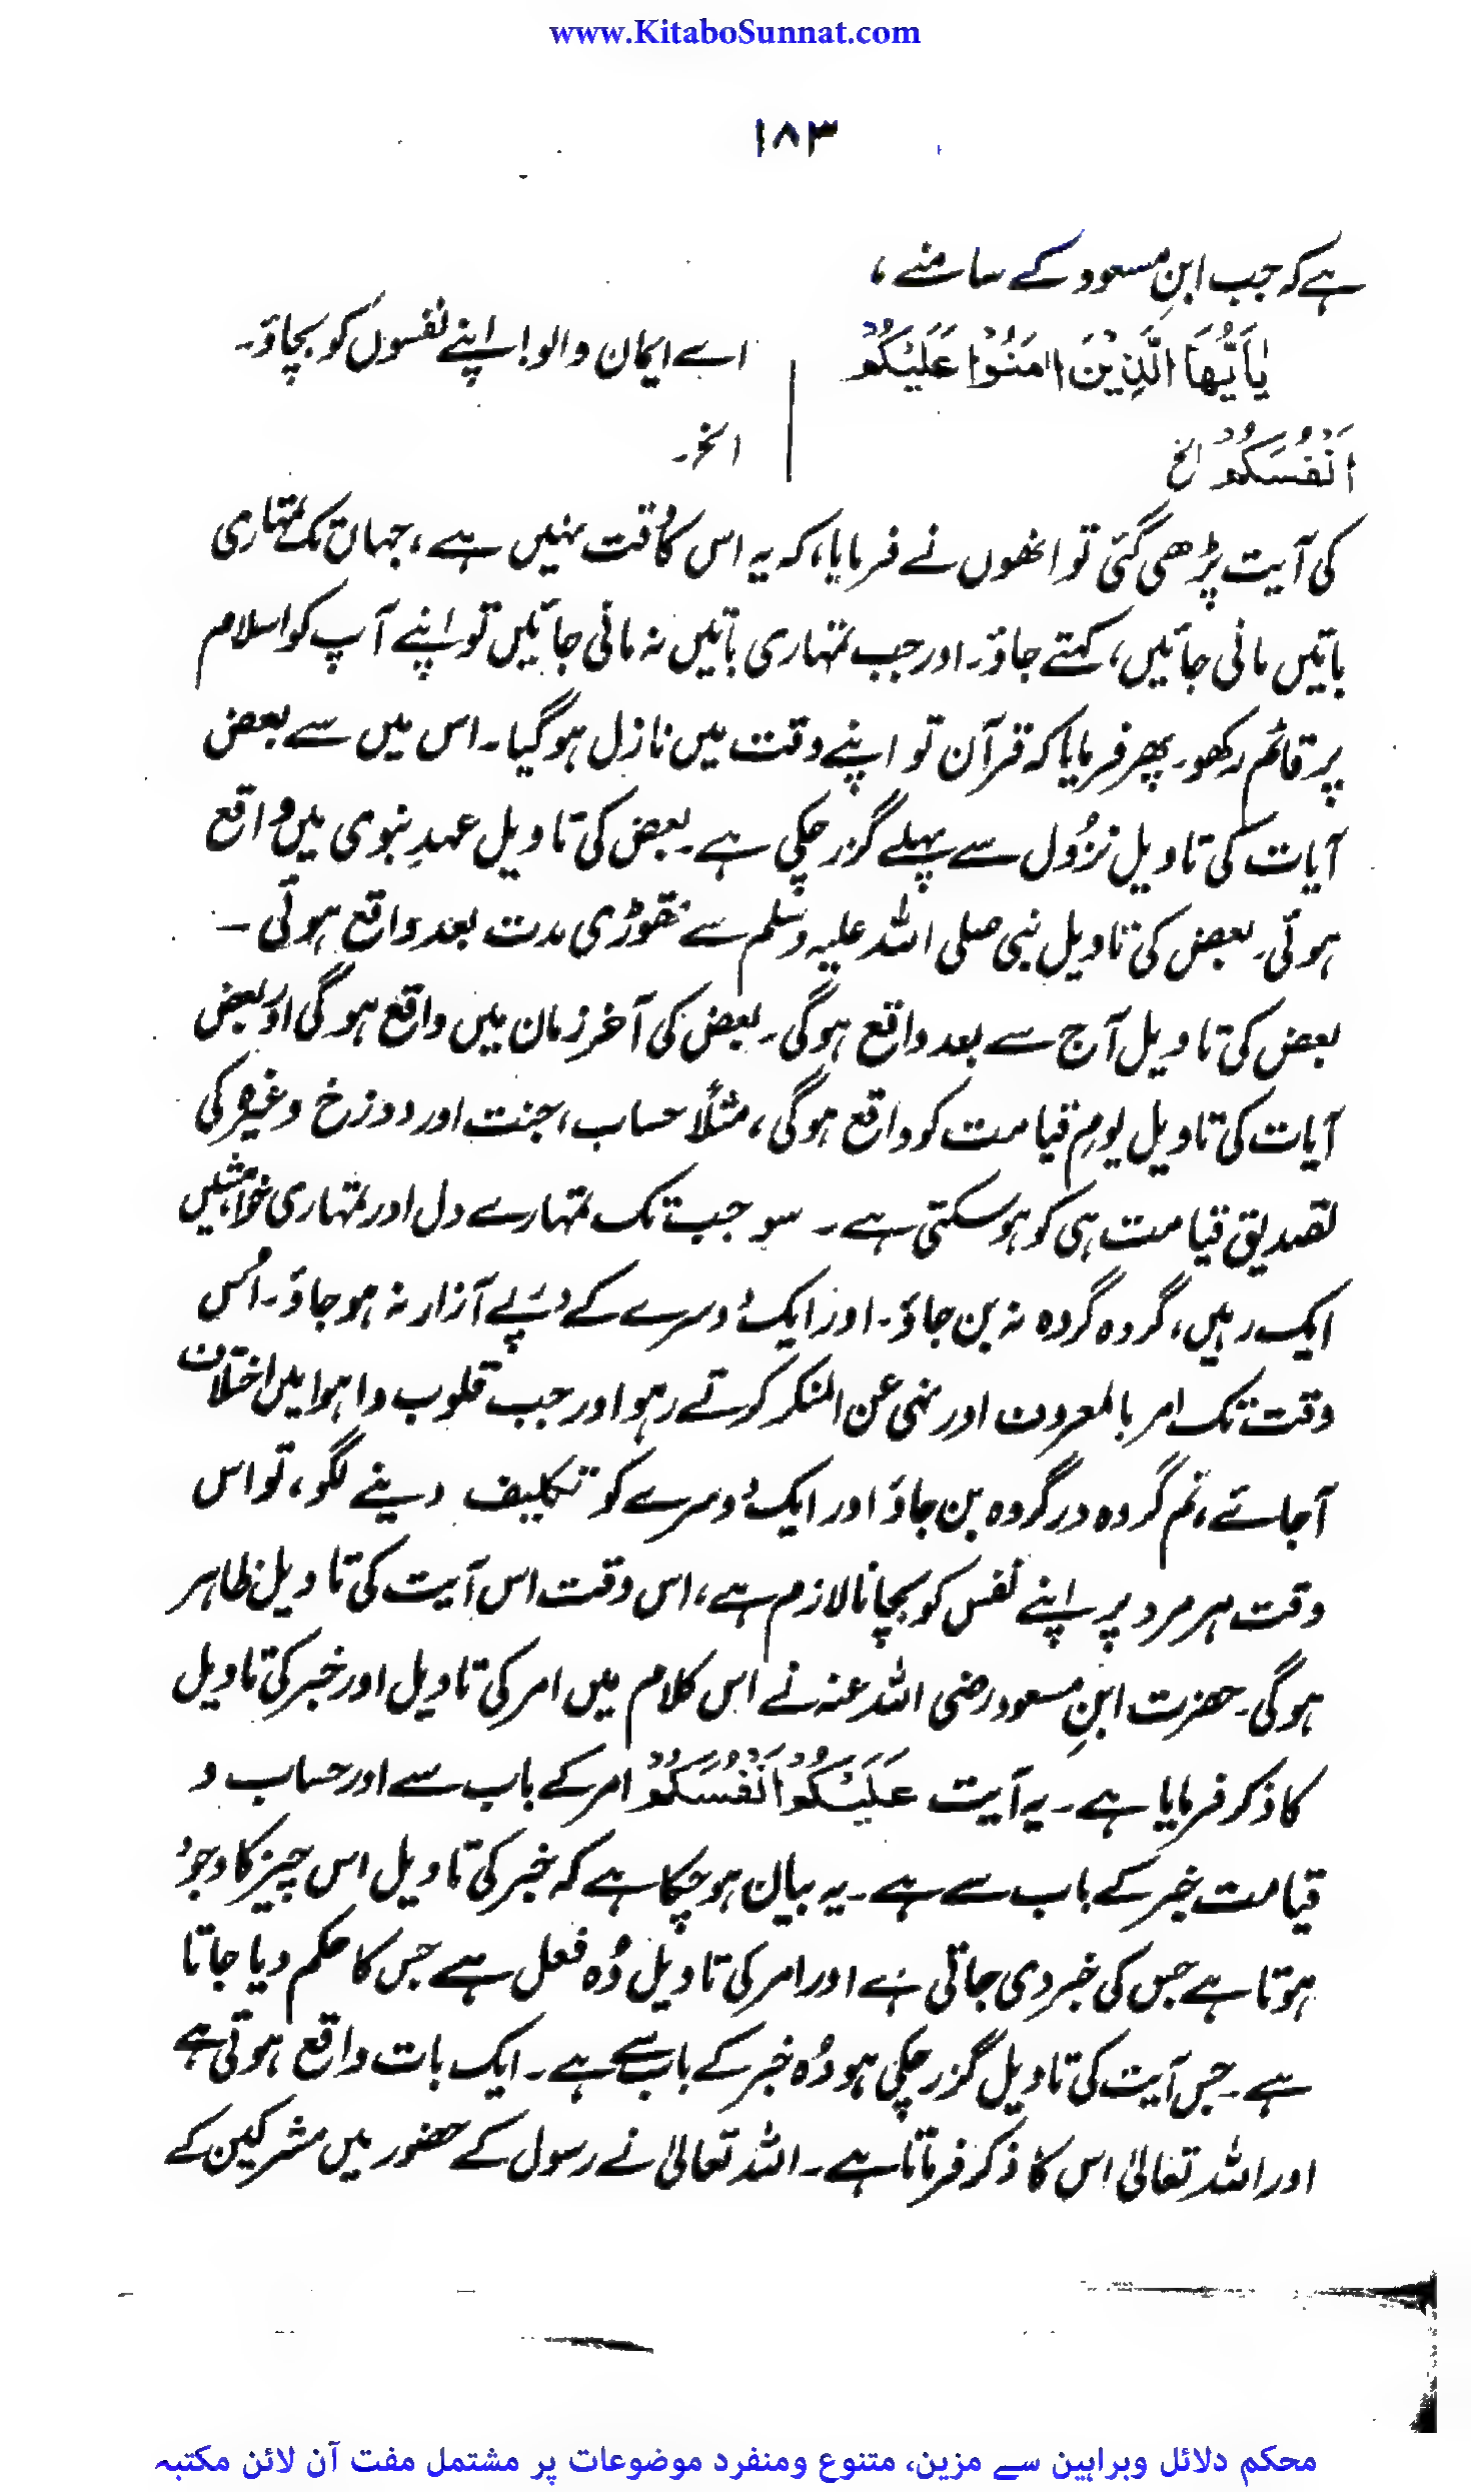 www.KitaboSunnat.com
۱۸۳
ہے کہ جب ابنِ مسعود کے سامنے ،
يٰٓاَيُّهَا الَّذِيْنَ اٰمَنُوْا عَلَيْكُمْ
اَنْفُسَكُمْ الخ
اے ایمان والو! اپنے نفسوں کو بچاؤ۔
الخ۔
کی آیت پڑھی گئی تو انھوں نے فرمایا، کہ یہ اس کا وُقت نہیں ہے، جہاں تک تمہاری
باتیں مانی جائیں، کہتے جاؤ۔ اور جب تمہاری باتیں نہ مانی جائیں تو اپنے آپ کو اسلام
پر قائم رکھو۔ پھر فرمایا کہ قرآن تو اپنے وقت میں نازل ہو گیا۔ اس میں سے بعض
آیات کی تاویل نزُول سے پہلے گزر چکی ہے۔ بعض کی تاویل عہدِ نبوی میں واقع
ہوئی۔ بعض کی تاویل نبی صلی اللہ علیہ وسلم سے تھوڑی مدت بعد واقع ہوئی ۔
بعض کی تاویل آج سے بعد واقع ہوگی۔ بعض کی آخر زمان میں واقع ہو گی اور بعض
آیات کی تاویل یومِ قیامت کو واقع ہوگی، مثلًا حساب، جنت اور دوزخ وغیرہ کی
تصدیق قیامت ہی کو ہو سکتی ہے۔ سو جب تک تمہارے دل اور تمہاری خواہشیں
ایک رہیں، گروہ گروہ نہ بن جاؤ۔ اور ایک دُوسرے کے درپَے آزار نہ ہو جاؤ۔ اُس
وقت تک امر بالمعروف اور نہی عن المنکر کرتے رہو اور جب قلوب و اہوا میں اختلاف
آجائے، تم گروہ در گروہ بن جاؤ اور ایک دُوسرے کو تکلیف دینے لگو، تو اس
وقت ہر مرد پر اپنے نفس کو بچانا لازم ہے، اس وقت اس آیت کی تاویل ظاہر
ہوگی۔ حضرت ابنِ مسعود رضی اللہ عنہ نے اس کلام میں امر کی تاویل اور خبر کی تاویل
کا ذکر فرمایا ہے۔ یہ آیت عَلَيْكُمْ اَنْفُسَكُمْ امر کے باب سے اور حساب و
قیامت خبر کے باب سے ہے۔ یہ بیان ہو چکا ہے کہ خبر کی تاویل اس چیز کا وجُود
ہوتا ہے جس کی خبر دی جاتی ہے اور امر کی تاویل وُہ فعل ہے جس کا حکم دیا جاتا
ہے۔ جس آیت کی تاویل گزر چکی ہو وُہ خبر کے باب سے ہے۔ ایک بات واقع ہوتی ہے
اور اللہ تعالیٰ اس کا ذکر فرماتا ہے۔ اللہ تعالیٰ نے رسول کے حضور میں مشرکین کے
محکم دلائل وبراہین سے مزین، متنوع ومنفرد موضوعات پر مشتمل مفت آن لائن مکتبہ